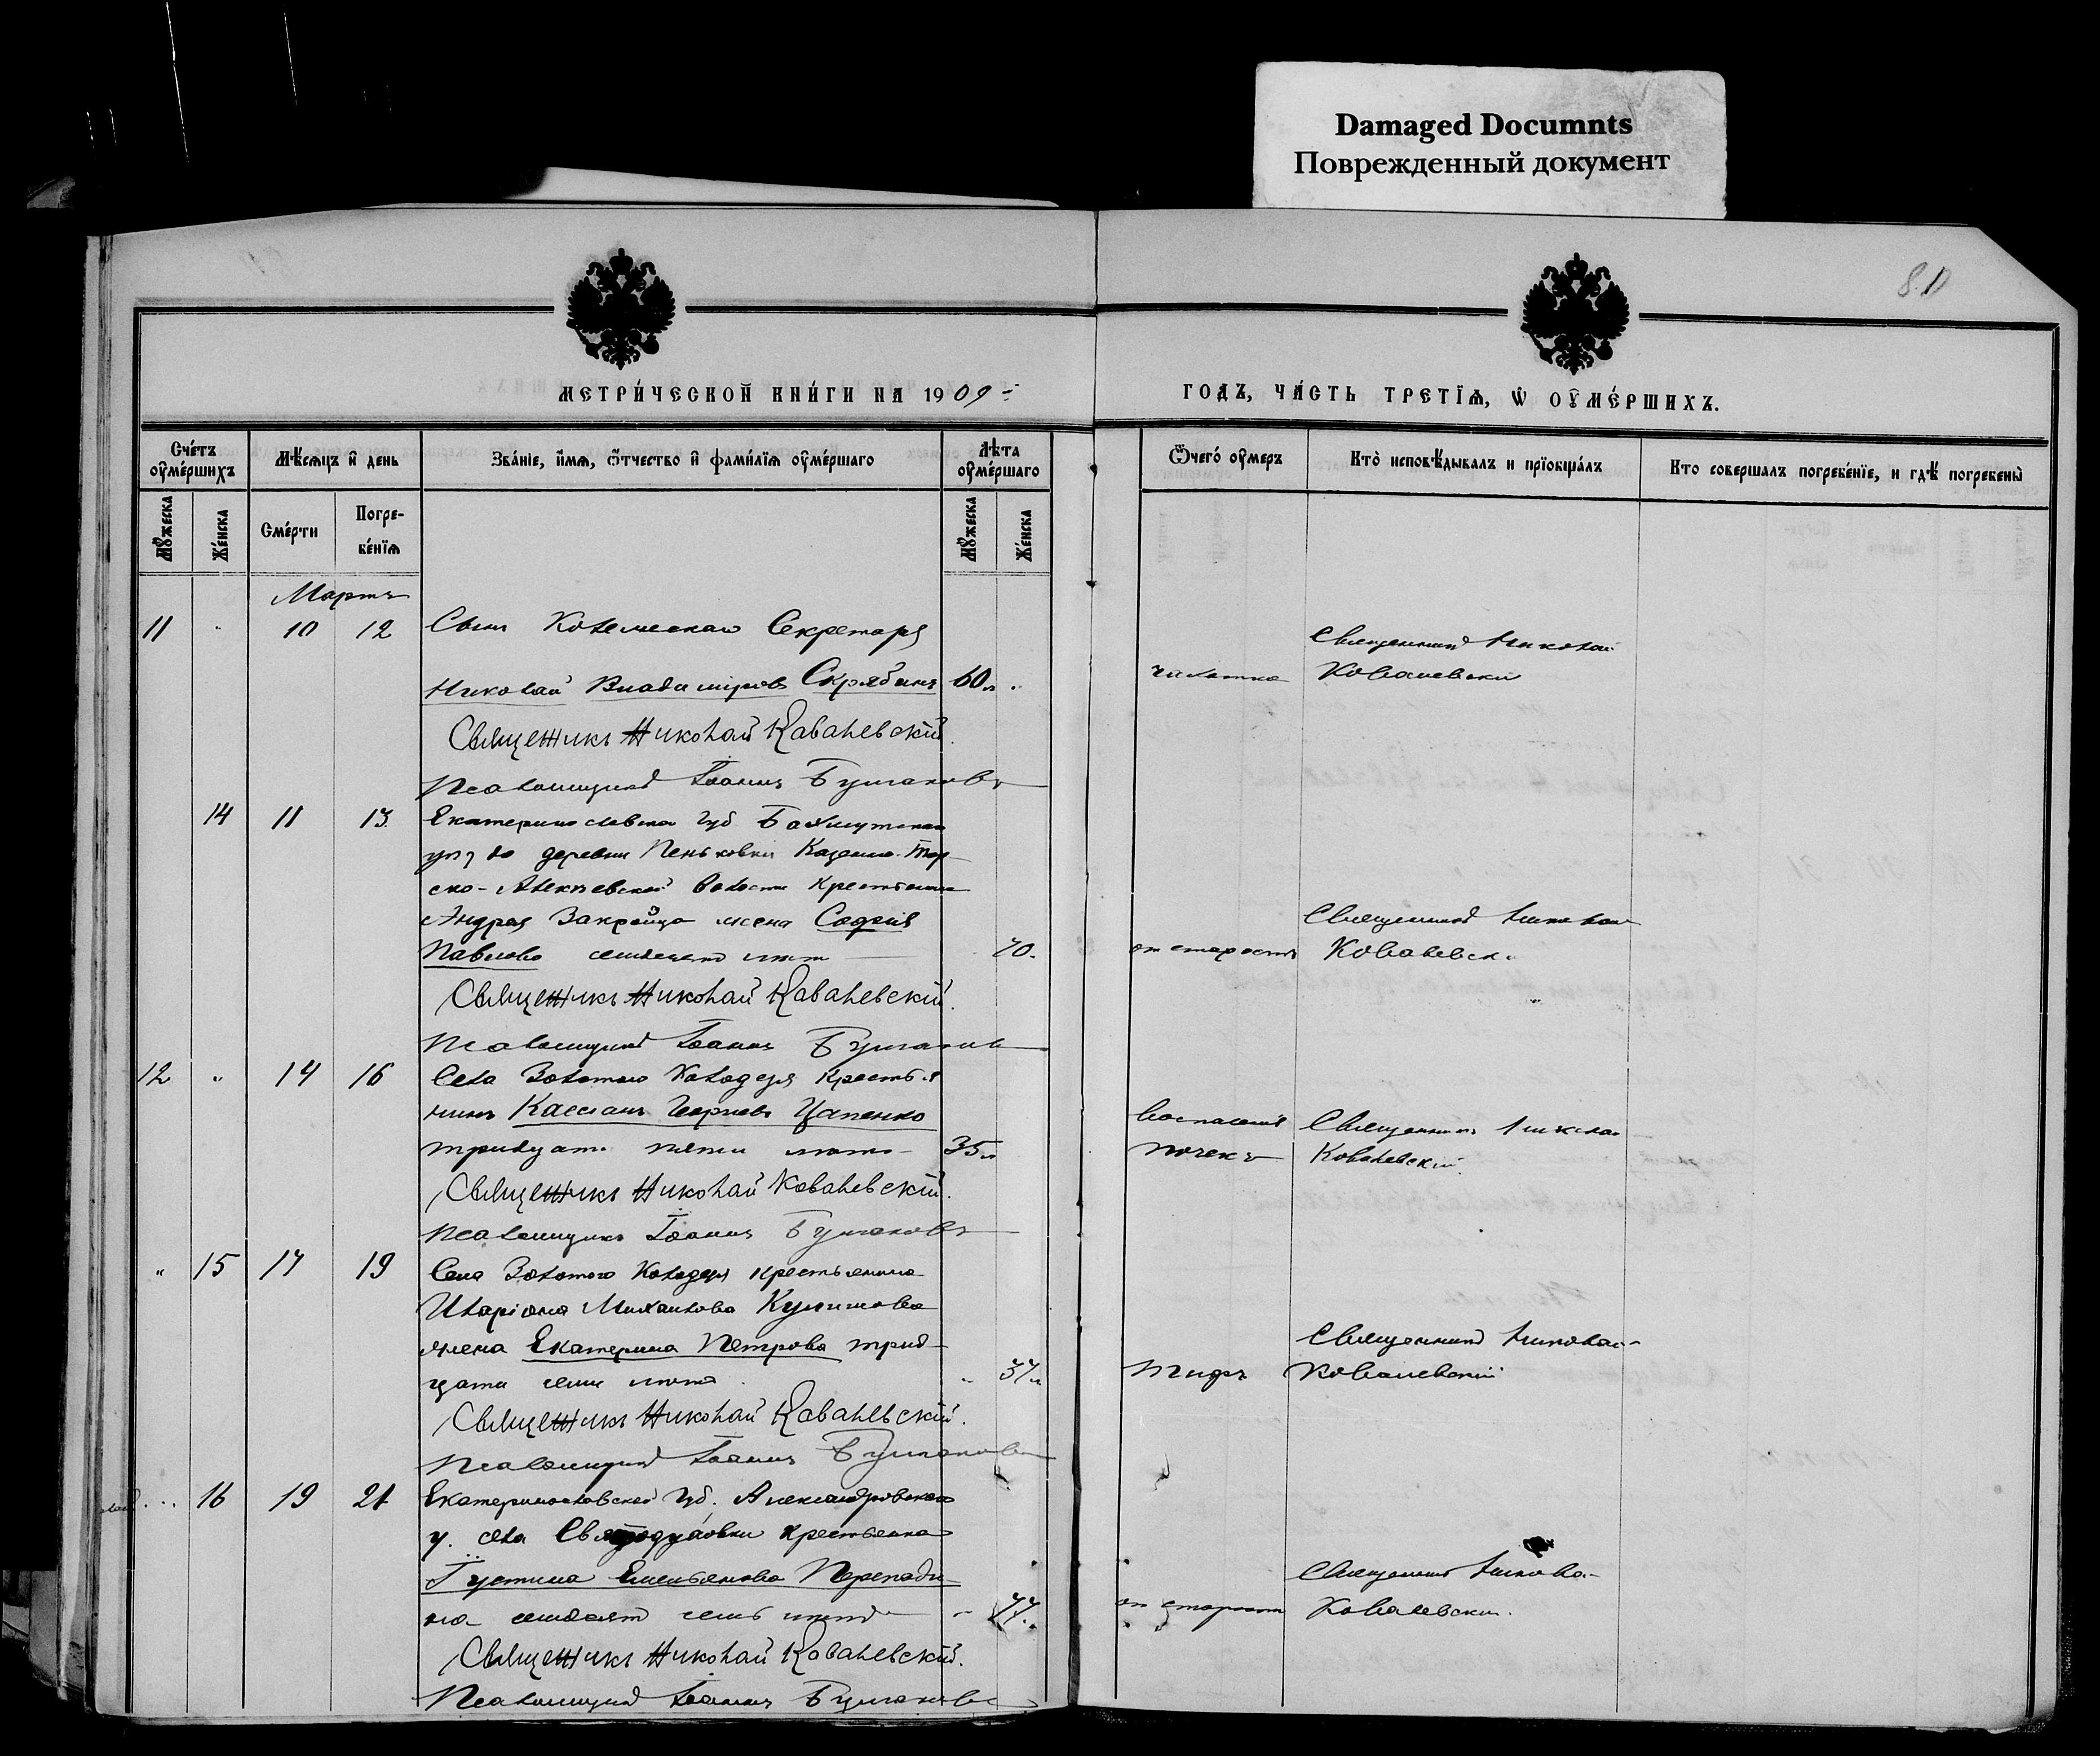 Damaged Documnts
Поврежденный документ
МЕТРИ́ЧЕСКОЙ КНИ́ГИ НА 1909 ГОДЪ, ЧА́СТЬ ТРЕТЇѦ, Ѡ҆ ОУ҆МЕ́РШИХЪ.
Сче́тъ оу҆ме́ршихъ
Мѣ́сѧцъ и҆ день
Зва́нїе, и҆́мѧ, ѻ҆́тчество и҆ фами́лїѧ оу҆ме́ршаго
Лѣ́та оу҆ме́ршаго
Ѿчегѡ̀ оу҆меръ
Кто̀ исповѣ́дывалъ и прїобща́лъ
Кто совершалъ погребе́нїе, и гдѣ̀ погребены̀
Мꙋ́жеска
Же́нска
Сме́рти
Погре-
бе́нїѧ
Мꙋ́жеска
Же́нска
Мартъ
11 " 10 12 Сынъ Секретаря
Николай Владиміровъ Скрябинъ 60 л. чахотка Священникъ Николай Ковалевскій
Священникъ Николай Ковалевскій.
Псаломщикъ Іоаннъ Булгаковъ
14 11 13 Екатеринославской губ. Бахмутскаго
деревни Пеньковки Казенно-Тор-
ско-Алексѣевской волости крестьянина
Андрея Закройца жена Софія
Павлова семьдесятъ лѣтъ 70. отъ старости Священникъ Николай Ковалевскій
Священникъ Николай Ковалевскій.
Псаломщикъ Іоаннъ Булгаковъ
12 " 14 16 Села Золотого Колодезя крестья-
нинъ Кассіанъ Георгіевъ Цапенко
тридцати пяти лѣтъ 35 л. Воспаленія почекъ Священникъ Николай Ковалевскій.
Священникъ Николай Ковалевскій.
Псаломщикъ Іоаннъ Булгаковъ
" 15 17 19 Села Золотого Колодезя крестьянина
Иларіона Михаилова
жена Екатерина Петрова трид-
цати семи лѣтъ. " 37 л. Тифъ Священникъ Николай Ковалевскій
Священникъ Николай Ковалевскій.
Псаломщикъ Іоаннъ Булгаковъ
16 19 21 Екатеринославской губ. Александровскаго
у. села Святодуховки крестьянка
Іустина Емельянова Перепади-
на семьдесятъ семь лѣтъ " 77. отъ старости Священникъ Николай Ковалевскій.
Священникъ Николай Ковалевскій.
Псаломщикъ Іоаннъ Булгаковъ